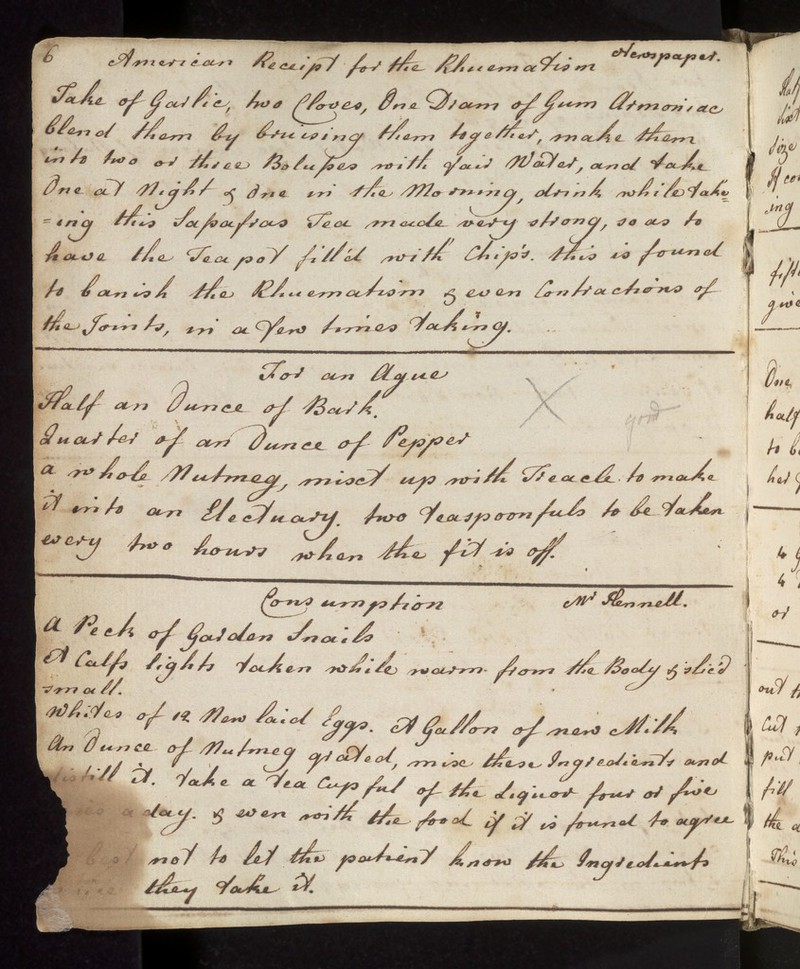 6 American Receipt for the Rhuematism Newspaper.
Take of Garlic, two Cloves, One Dram of Gum Armoniac
blend them by bruising them together, make them
into two or three Bolusses with fair Water, and take
One at Night & One in the Morning, drink while take=
=ing this Sassafras Tea made very strong, so as to
have the Tea pot fill'd with Chips. this is found
to banish the Rhuematism & even Contractions of
the Joints, in a few times taking.
For an Ague
Half an Ounce of Bark.
Quarter of an Ounce of Pepper
good
a whole Nutmeg, mixct up with Treacle to make
it into an Electuary. two teaspoonfuls to be taken
every two hours when the fit is off.
Consumption Mr Hennell.
A Peck of Garden Snails
A Calfs lights taken while warm from the Body & slic'd
small.
Whites of 12 New laid Eggs. A Gallon of new Milk
An Ounce of Nutmeg grated, mix these Ingredients and
distill it. take a tea Cup ful of the Liquor four or five
a day. & even with the food if it is found to agree
best not to let the patient know the Ingredients
they take it.
Half
Size
ing
give
One
half
to
her
4
4
or
out
Cut
put
fill
the
This